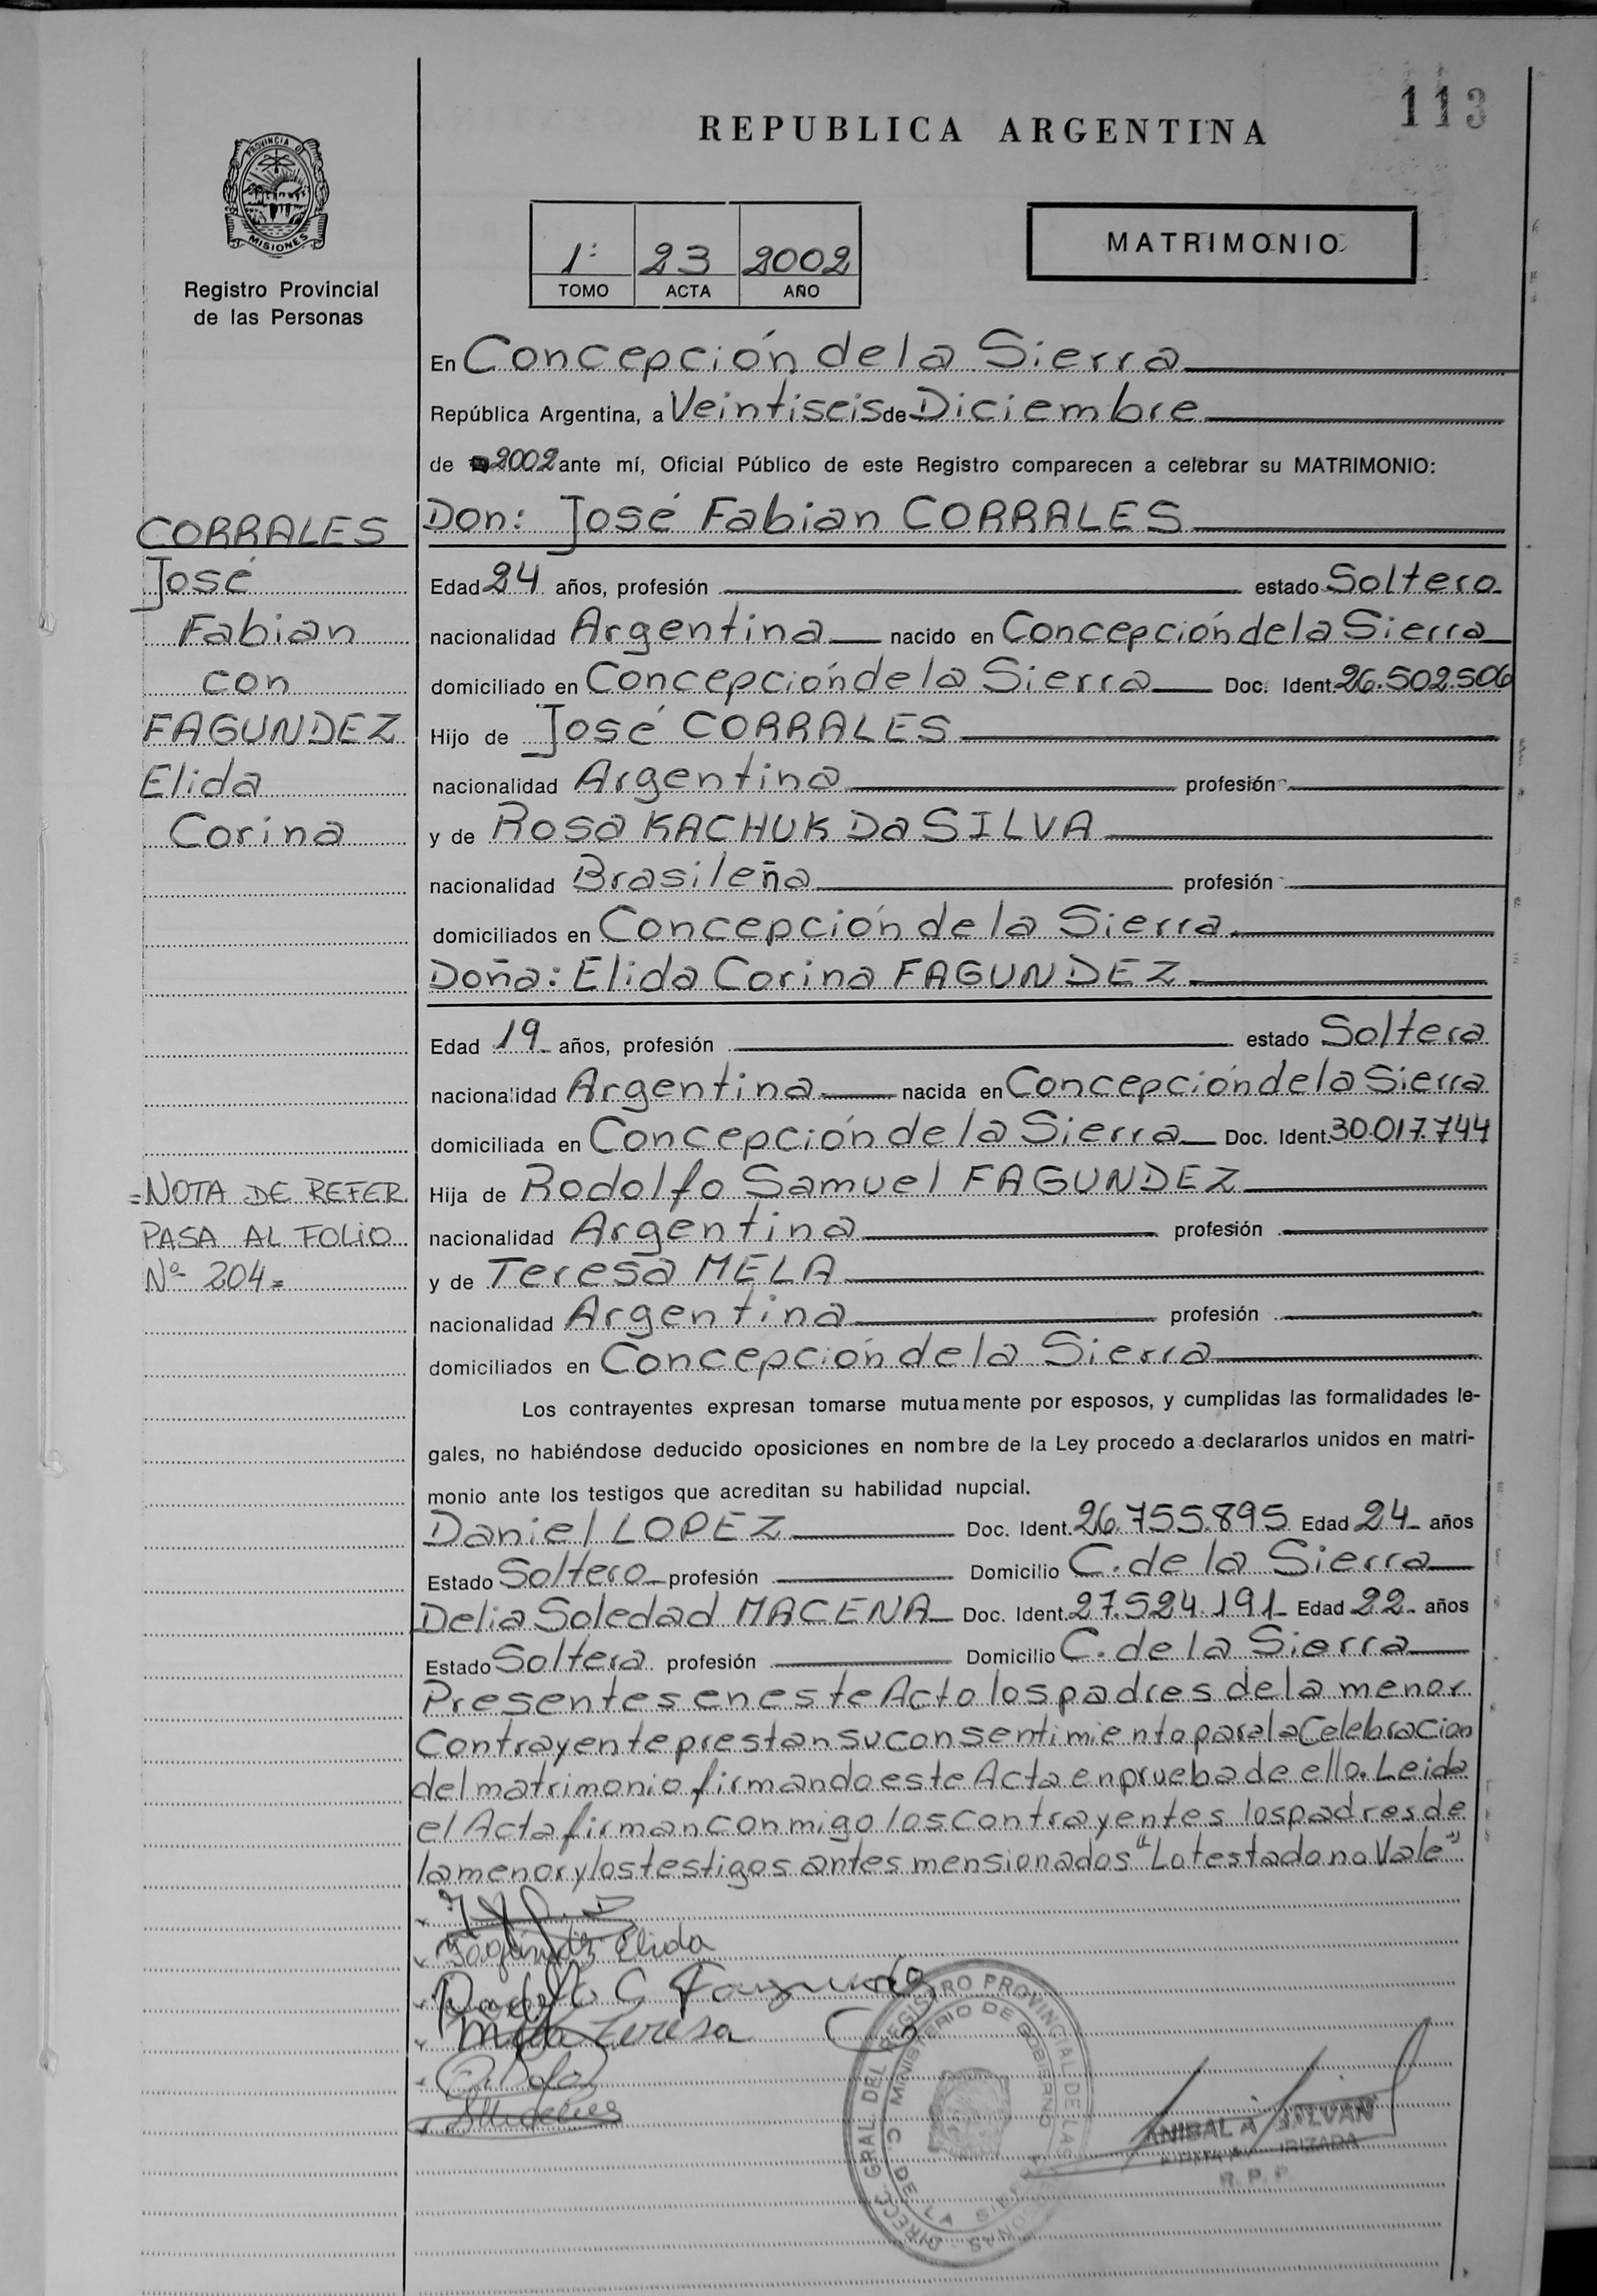 113
REPUBLICA ARGENTINA
PROVINCIA DE
MISIONES
Registro Provincial
de las Personas
1º 23 2002
TOMO ACTA AÑO
MATRIMONIO
En Concepción de la Sierra
República Argentina, a Veintiseis de Diciembre
de 2002 ante mí, Oficial Público de este Registro comparecen a celebrar su MATRIMONIO:
Don: José Fabian CORRALES
Edad 24 años, profesión estado Soltero
nacionalidad Argentina nacido en Concepción de la Sierra
domiciliado en Concepción de la Sierra Doc. Ident. 26.502.506
Hijo de José CORRALES
nacionalidad Argentina profesión
y de Rosa KACHUK Da SILVA
nacionalidad Brasileña profesión
domiciliados en Concepción de la Sierra
Doña: Elida Corina FAGUNDEZ
Edad 19 años, profesión estado Soltera
nacionalidad Argentina nacida en Concepción de la Sierra
domiciliada en Concepción de la Sierra Doc. Ident. 30.017.744
Hija de Rodolfo Samuel FAGUNDEZ
nacionalidad Argentina profesión
y de Teresa MELA
nacionalidad Argentina profesión
domiciliados en Concepción de la Sierra
Los contrayentes expresan tomarse mutuamente por esposos, y cumplidas las formalidades le-
gales, no habiéndose deducido oposiciones en nombre de la Ley procedo a declararlos unidos en matri-
monio ante los testigos que acreditan su habilidad nupcial.
Daniel LOPEZ Doc. Ident. 26.755.895 Edad 24 años
Estado Soltero profesión Domicilio C. de la Sierra
Delia Soledad MACENA Doc. Ident. 27.524.191 Edad 22 años
Estado Soltera profesión Domicilio C. de la Sierra
Presentes en este Acto los padres de la menor
Contrayente prestan su consentimiento para la Celebracion
del matrimonio firmando este Acta en prueba de ello. Leida
el Acta firman conmigo los contrayentes los padres de
la menor y los testigos antes mensionados "Lo testado no Vale"
CORRALES
José
Fabian
con
FAGUNDEZ
Elida
Corina
=NOTA DE REFER.
PASA AL FOLIO
Nº 204=
Fagundez Elida
Mela Teresa
DIRECC. GRAL. DEL REGISTRO PROVINCIAL DE LAS PERSONAS
MINISTERIO DE GOBIERNO
C. DE LA SIERRA
ANIBAL A
R.P.P.